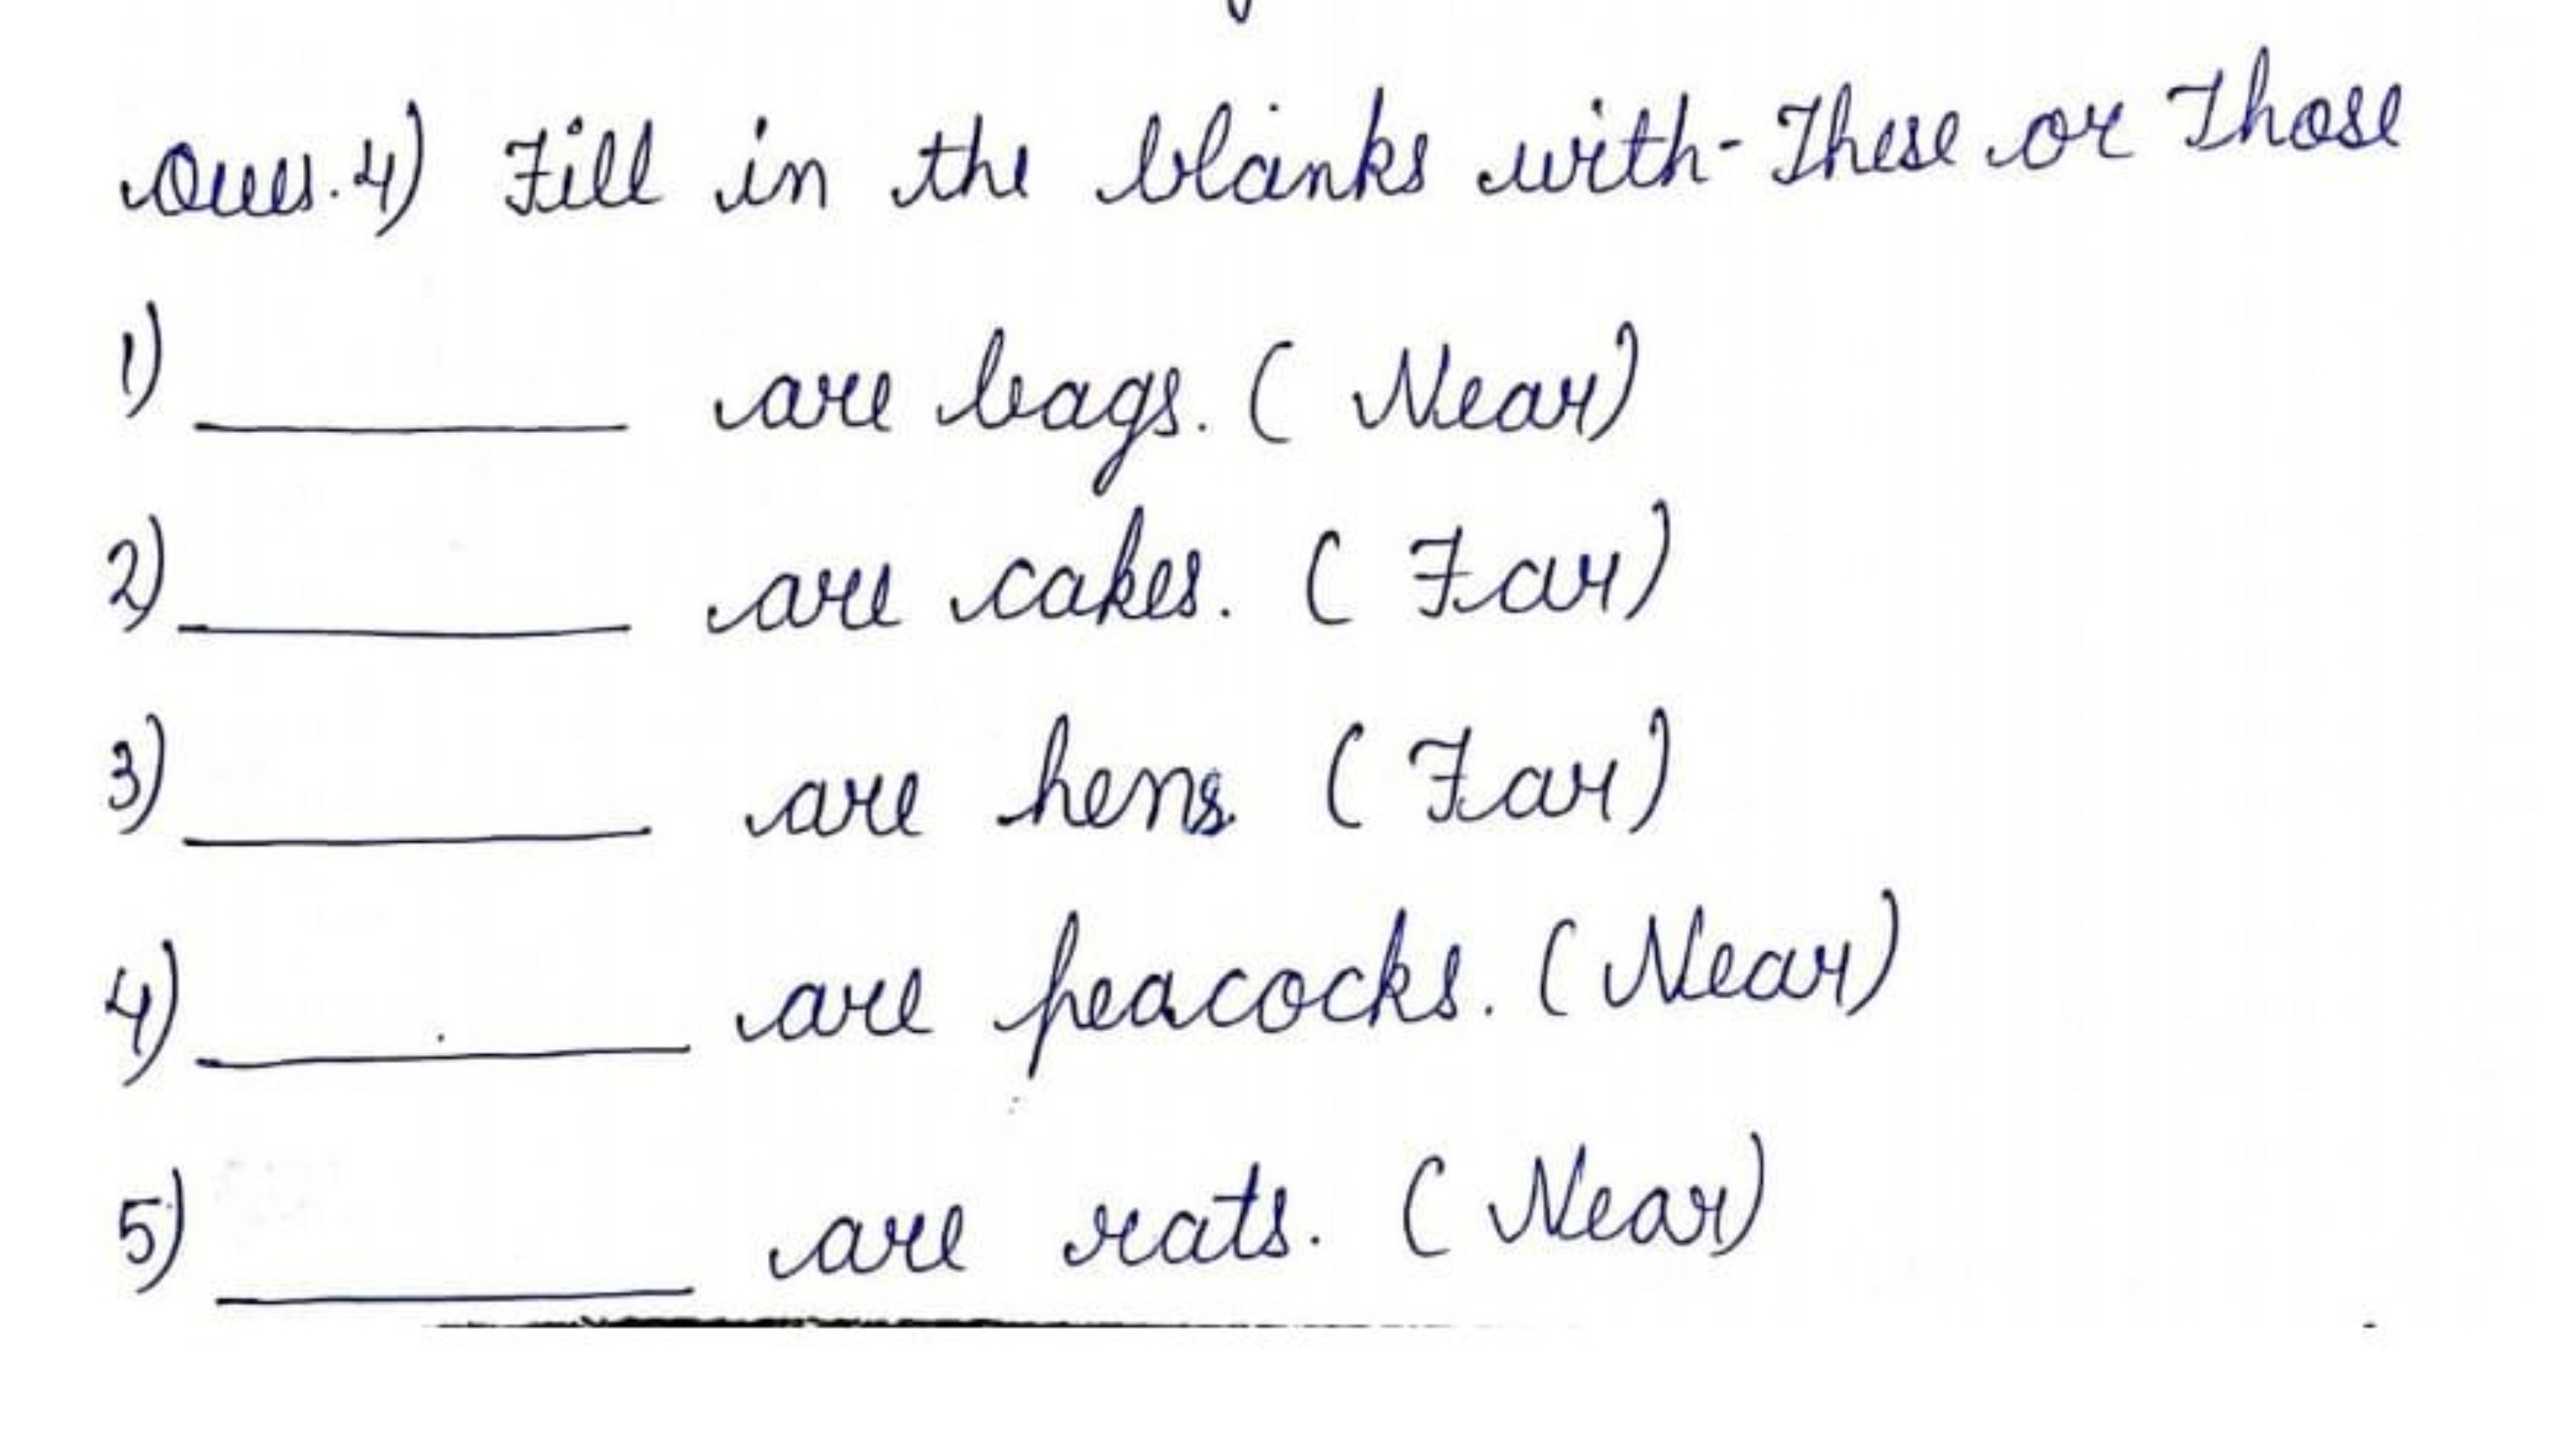 Ques.4) Fill in the blanks with- These or Those
1) __________ are bags. ( Near)
2) __________ are cakes. ( Far)
3) __________ are hens. ( Far)
4) __________ are peacocks. ( Near)
5) __________ are rats. ( Near)